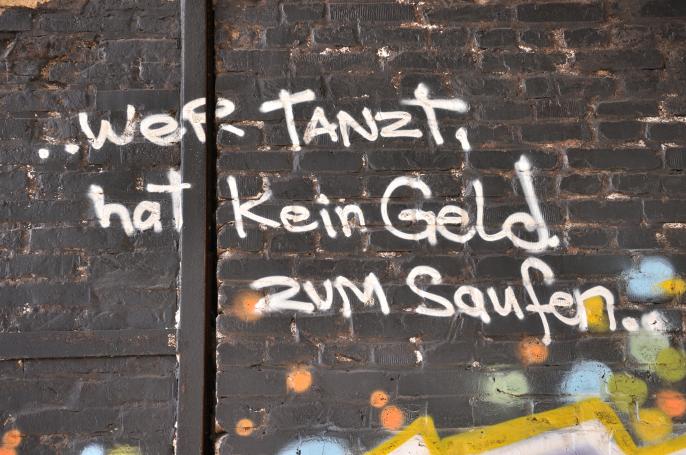 ..weR TANZT,
hat kein Geld
zum Saufen..